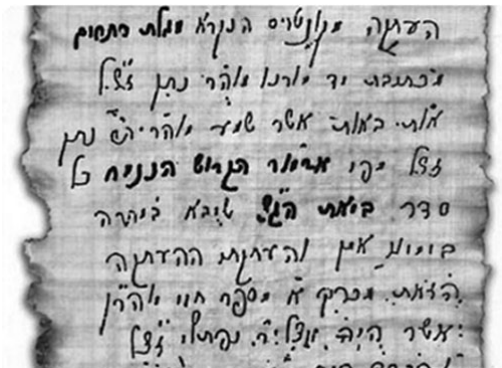 העתקה מקונטרס הנקרא מגלת סתרים
מכתיבת יד מורנו מוהר״ר נתן זצ״ל
אות באות אשר שמע מוהר״ר נתן
זצ״ל מפי אדמו״ר הקדוש הננ״ח כל
סדר ביאת הג״צ שיבא במהרה
בימינו אמן והעתקת ההעתקה
הזאת מכרך א׳ מספר חיי מוהר״ן
אשר היה אצל ר׳ נפתלי זצ״ל